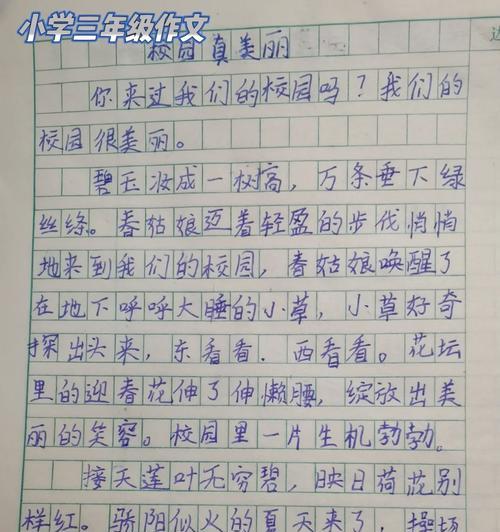 小学三年级作文
校园真美丽
你来过我们的校园吗？我们的
校园很美丽。
碧玉妆成一树高，万条垂下绿
丝绦。春姑娘迈着轻盈的步伐悄悄
地来到我们的校园，春姑娘唤醒了
在地下呼呼大睡的小草，小草好奇
探出头来，东看看．西看看。花坛
里的迎春花伸了伸懒腰，绽放出美
丽的笑容。校园里一片生机勃勃。
接天莲叶无穷碧，映日荷花别
样红。骄阳似火的夏天来了，操场